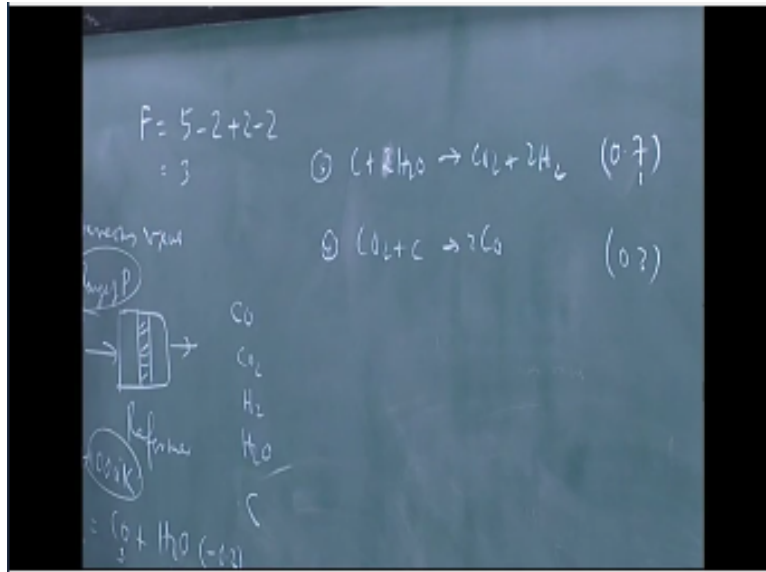 F = 5-2+2-2
= 3
③ C + 2H2O → CO2 + 2H2 (0.7)
④ CO2 + C → 2CO (0.2)
Range P
CO
CO2
H2
H2O
C
Reformer
1000K
= CO + H2O (-0.2)